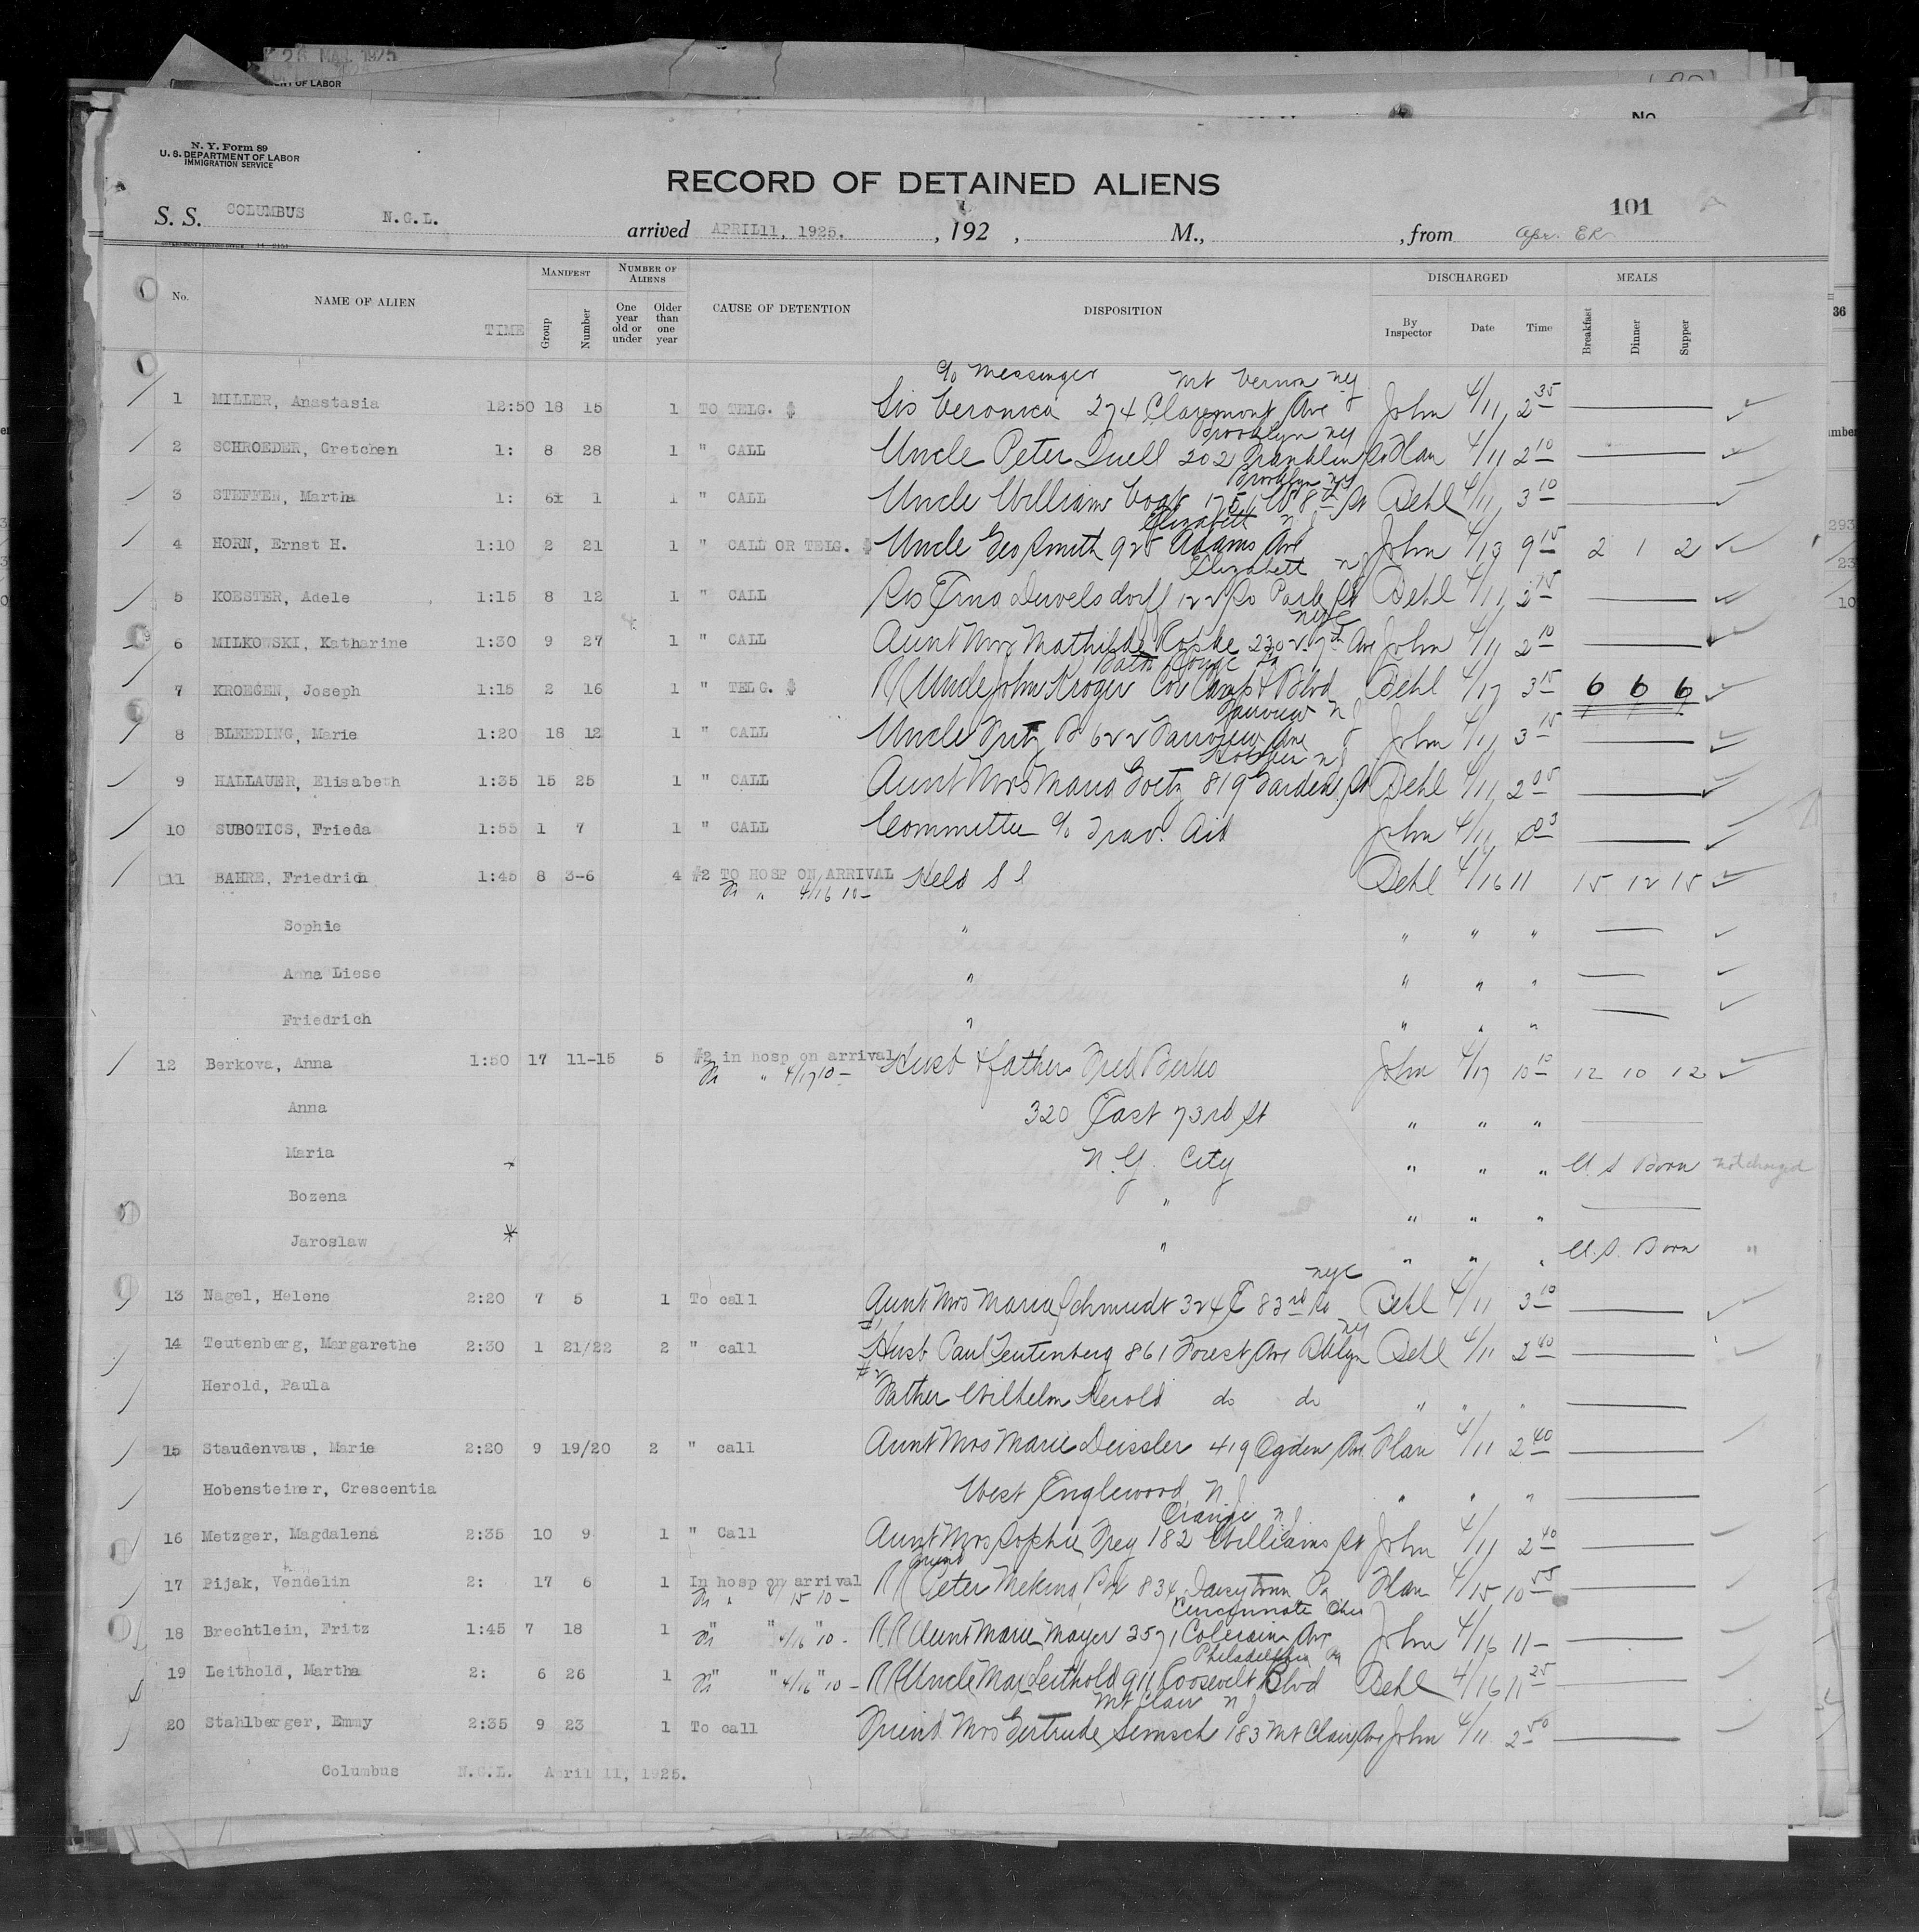 26 MAR 1925
MENT OF LABOR
No
N. Y. Form 89
U. S. DEPARTMENT OF LABOR
IMMIGRATION SERVICE
RECORD OF DETAINED ALIENS
101
S. S. COLUMBUS N.G.L. arrived APRIL 11, 1925. , 192 , M., , from Apr. ER
No. NAME OF ALIEN TIME MANIFEST Group Number NUMBER OF ALIENS One year old or under Older than one year CAUSE OF DETENTION DISPOSITION DISCHARGED By Inspector Date Time MEALS Breakfast Dinner Supper
c/o Messenger Mt Vernon NY
1 MILLER, Anastasia 12:50 18 15 1 TO TELG. $ Sis Veronica 274 Claremont Ave John 4/11 2 35
Brooklyn NY
2 SCHROEDER, Gretchen 1: 8 28 1 " CALL Uncle Peter 202 Franklin 4/11 2 10
Brooklyn NY
3 STEFFEN, Martha 1: 1 1 " CALL Uncle William W 8th St Behl 4/11 3 10
Elizabeth NJ
4 HORN, Ernst H. 1:10 2 21 1 " CALL OR TELG. $ Uncle Geo Smith 925 Adams Ave John 4/13 9 15 2 1 2
Elizabeth NJ
5 KOESTER, Adele 1:15 8 12 1 " CALL 122 So Park St Behl 4/11
NYC
6 MILKOWSKI, Katharine 1:30 9 27 1 " CALL Aunt Mrs Mathilde 7th Ave John 4/11 2 10
7 KROEGEN, Joseph 1:15 2 16 1 " TELG. $ RR Uncle John Kroger Cor Camp & Blvd Behl 4/17 3 15 6 6 6
Fairview NJ
8 BLEEDING, Marie 1:20 18 12 1 " CALL Uncle Fritz B 622 Fairview Ave John 4/11 3 15
9 HALLAUER, Elisabeth 1:35 15 25 1 " CALL Aunt Mrs Maria Goetz 819 Garden St Behl 4/11 2 05
10 SUBOTICS, Frieda 1:55 1 7 1 " CALL Committee c/o Trav. Aid John 4/11
11 BAHRE, Friedrich 1:45 8 3-6 4 #2 TO HOSP ON ARRIVAL Held S I Behl 4/16 11 15 12 15
" 4/16 10 -
Sophie " " " "
Anna Liese " " " "
Friedrich " " " "
12 Berkova, Anna 1:50 17 11-15 5 #2 in hosp on arrival Husb & father Fred Berko John 4/17 10 10 12 10 12
" 4/17 10 -
Anna 320 East 73rd St " " "
Maria N. Y. City " " " U S Born not charged
Bozena " " " "
Jaroslaw * " " " " U. S. Born "
NYC
13 Nagel, Helene 2:20 7 5 1 To call Aunt Mrs Maria Schmidt 324 E 83rd St Behl 4/11 3 10
NY
14 Teutenberg, Margarethe 2:30 1 21/22 2 " call Husb Paul Teutenberg 861 Forest Ave Bklyn Behl 4/11 2 40
#2
Herold, Paula Father Wilhelm Herold do do " " "
15 Staudenvaus, Marie 2:20 9 19/20 2 " call Aunt Mrs Marie Deissler 419 Ogden Ave 4/11 2 40
Hobensteiner, Crescentia West Englewood NJ " " "
Orange NJ
16 Metzger, Magdalena 2:35 10 9 1 " Call Aunt Mrs Sophie Frey 182 Williams St John 4/11 2 40
Friend
17 Pijak, Vendelin 2: 17 6 1 In hosp on arrival RR Peter Box 834 Daisytown Pa 4/15 10 55
" 4/15 10 -
Cincinnati Ohio
18 Brechtlein, Fritz 1:45 7 18 1 " " 4/16 " 10 - RR Aunt Marie Mayer 3571 Colerain Ave John 4/16 11 -
Philadelphia Pa
19 Leithold, Martha 2: 6 26 1 " " 4/16 " 10 - RR Uncle Max Leithold 911 Roosevelt Blvd Behl 4/16 11 25
Mt Clair NJ
20 Stahlberger, Emmy 2:35 9 23 1 To call Friend Mrs Gertrude Semsch 183 Mt Clair Ave John 4/11 2 50
Columbus N.G.L. April 11, 1925.